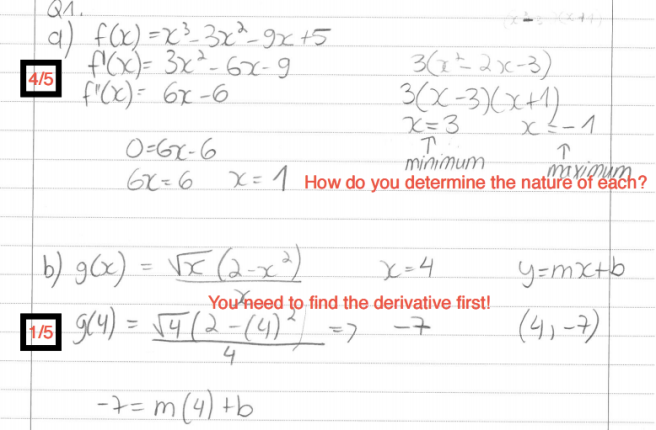 Q1.
a) f(x) = x³ - 3x² - 9x + 5
f'(x) = 3x² - 6x - 9
3(x² - 2x - 3)
4/5
f''(x) = 6x - 6
3(x-3)(x+1)
x = 3 x = -1
↑ ↑
0 = 6x - 6
minimum maximum
6x = 6 x = 1
How do you determine the nature of each?
b) g(x) = √x (2 - x²) / x
x = 4
y = mx + b
You need to find the derivative first!
1/5
g(4) = √4 (2 - (4)² / 4 => -7
(4, -7)
-7 = m(4) + b